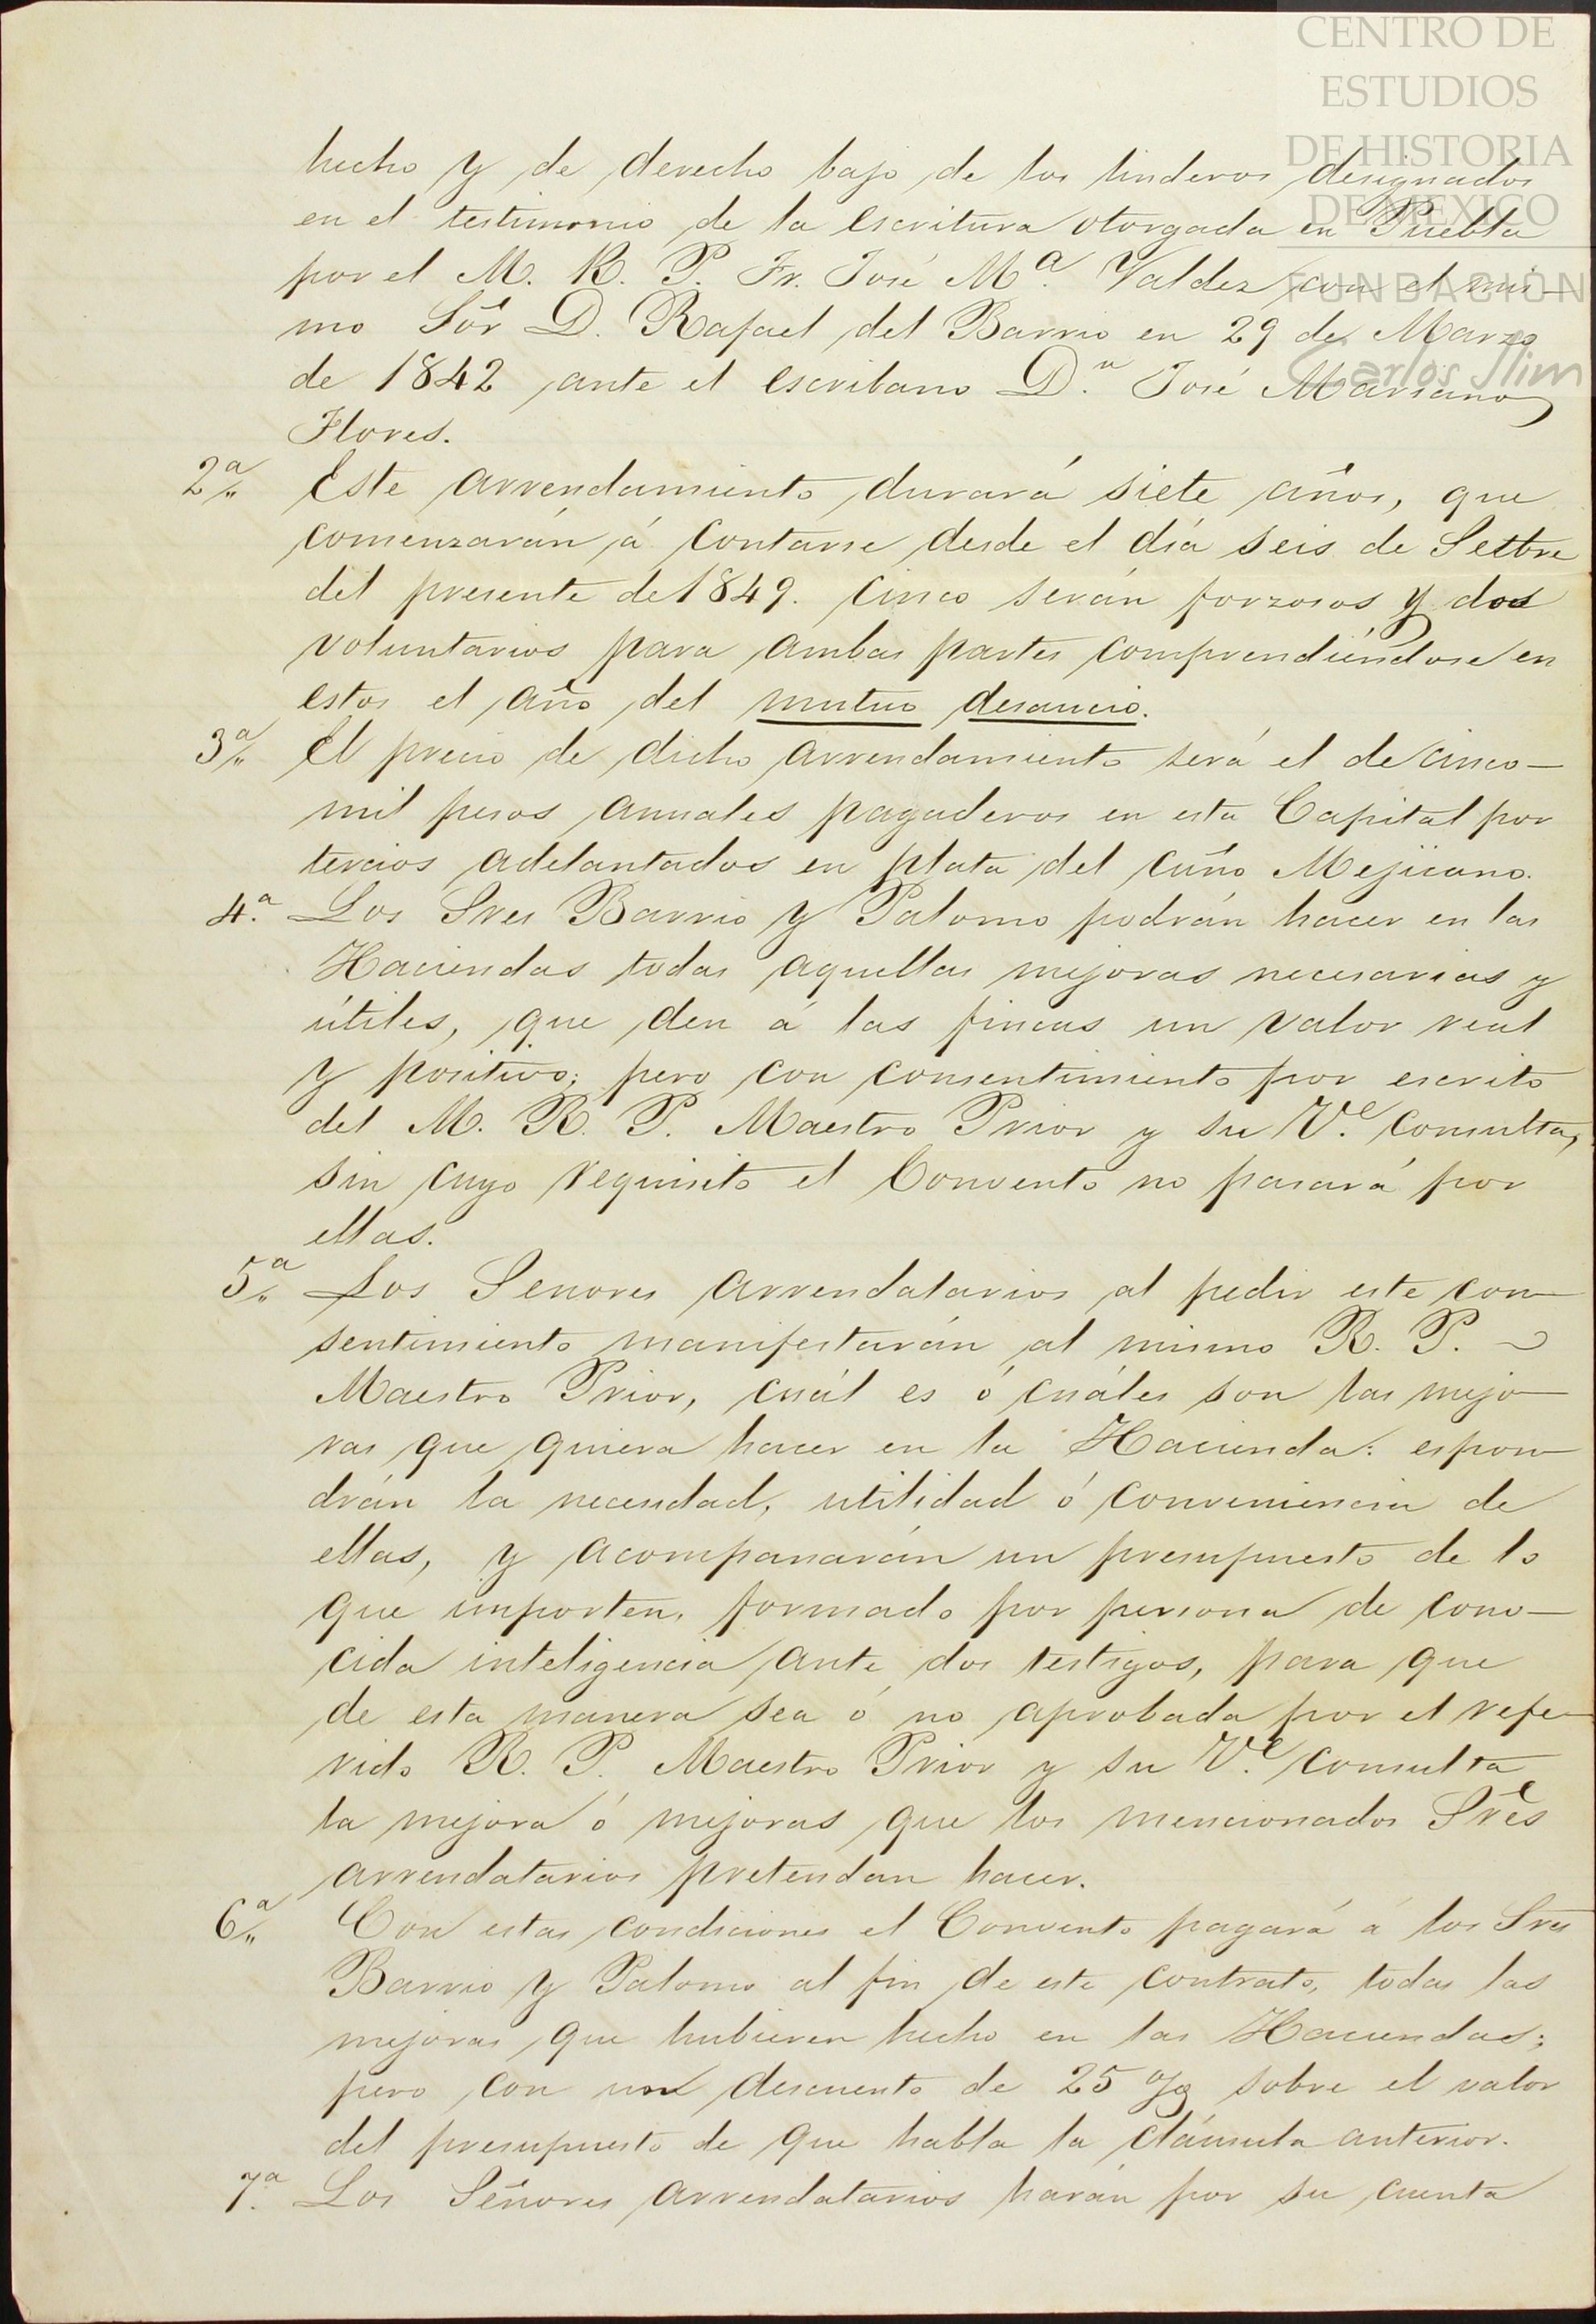 CENTRO DE
ESTUDIOS
DE HISTORIA
DE MEXICO
FUNDACIÓN
Carlos Slim
hecho y de derecho bajo de los linderos designados
en el testimonio de la escritura otorgada en Puebla
por el M. R. P. Fr. José Mª. Valdez con el mis-
mo Sôr D. Rafael del Barrio en 29 de Marzo
de 1842 ante el escribano D.n José Mariano
Flores.
2ª Este arrendamiento durará siete años, que
comenzarán á contarse desde el día seis de Setbre
del presente de 1849. Cinco serán forzosos y dos
voluntarios para ambas partes comprendiéndose en
estos el año del mutuo desaucio.
3ª El precio de dicho arrendamiento será el de cinco-
mil pesos anuales pagaderos en esta Capital por
tercios adelantados en plata del cuño Mejicano.
4.ª Los Sres Barrio y Palomo podrán hacer en las
Haciendas todas aquellas mejoras necesarias y
útiles, que den á las fincas un valor real
y positivo; pero con consentimiento por escrito
del M. R. P. Maestro Prior y su V.e Consulta,
sin cuyo requisito el Convento no pasará por
ellas.
5ª Los Senores arrendatarios al pedir este con-
sentimiento manifestarán al mismo R. P.
Maestro Prior, cuál es ó cuáles son las mejo-
ras que quiera hacer en la Hacienda: espon-
drán la necesidad, utilidad ó conveniencia de
ellas, y acompanarán un presupuesto de lo
que importen, formado por persona de cono-
cida inteligencia ante dos testigos, para que
de esta manera sea ó no aprobada por el refe-
rido R. P. Maestro Prior y su V.e Consulta
la mejora ó mejoras que los mencionados Srês
arrendatarios pretendan hacer.
6ª Con estas condiciones el Convento pagará á los Sres
Barrio y Palomo al fin de este contrato, todas las
mejoras que hubieren hecho en las Haciendas;
pero con un descuento de 25 % sobre el valor
del presupuesto de que habla la cláusula anterior.
7.ª Los Señores arrendatarios harán por su cuenta